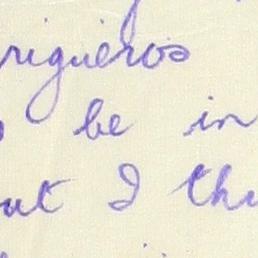 rigueros
be in
ut I thi